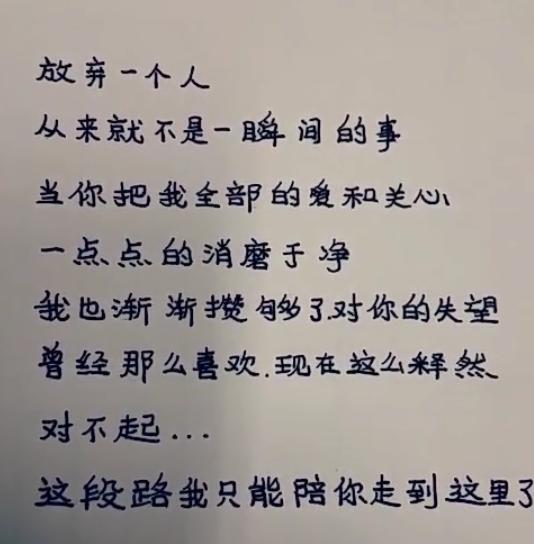 放弃一个人
从来就不是一瞬间的事
当你把我全部的爱和关心
一点点的消磨于净
我也渐渐攒够了.对你的失望
曾经那么喜欢.现在这么释然
对不起...
这段路我只能陪你走到这里了